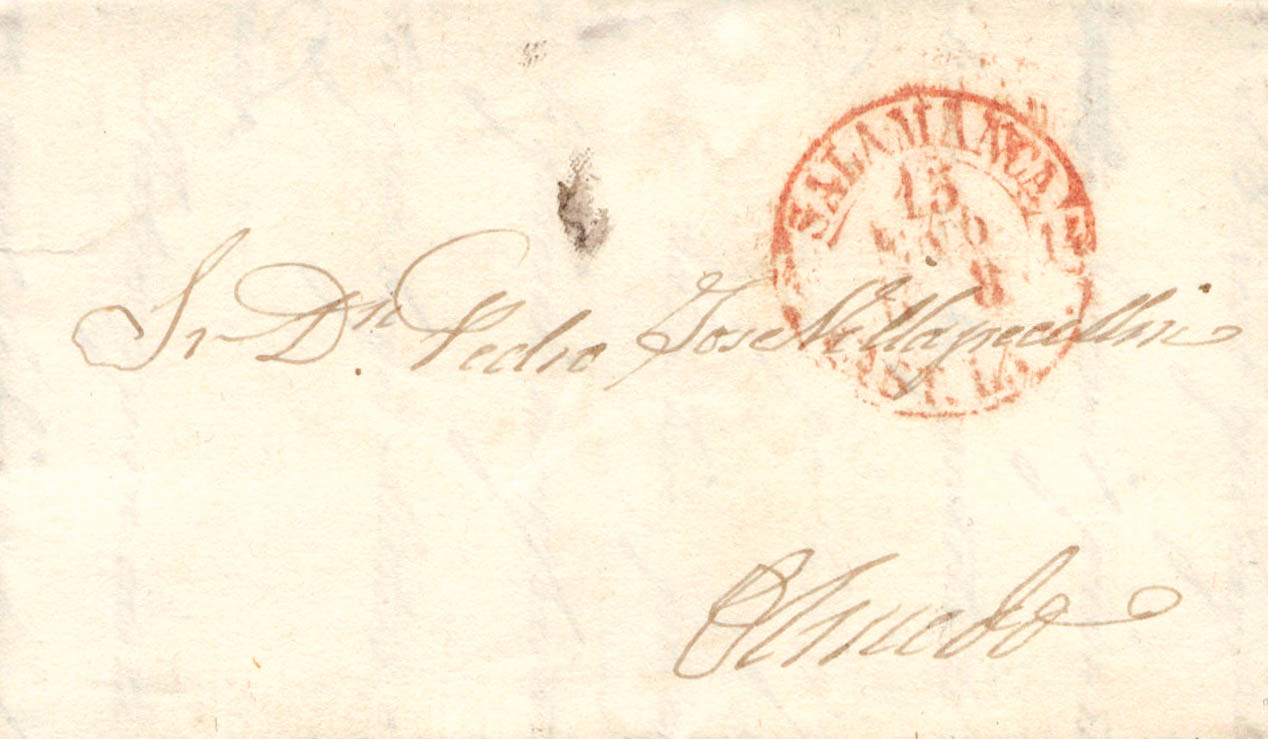 SALAMANCA
15
Sr. Dn Pedro Jose Villapecellin
Olmedo